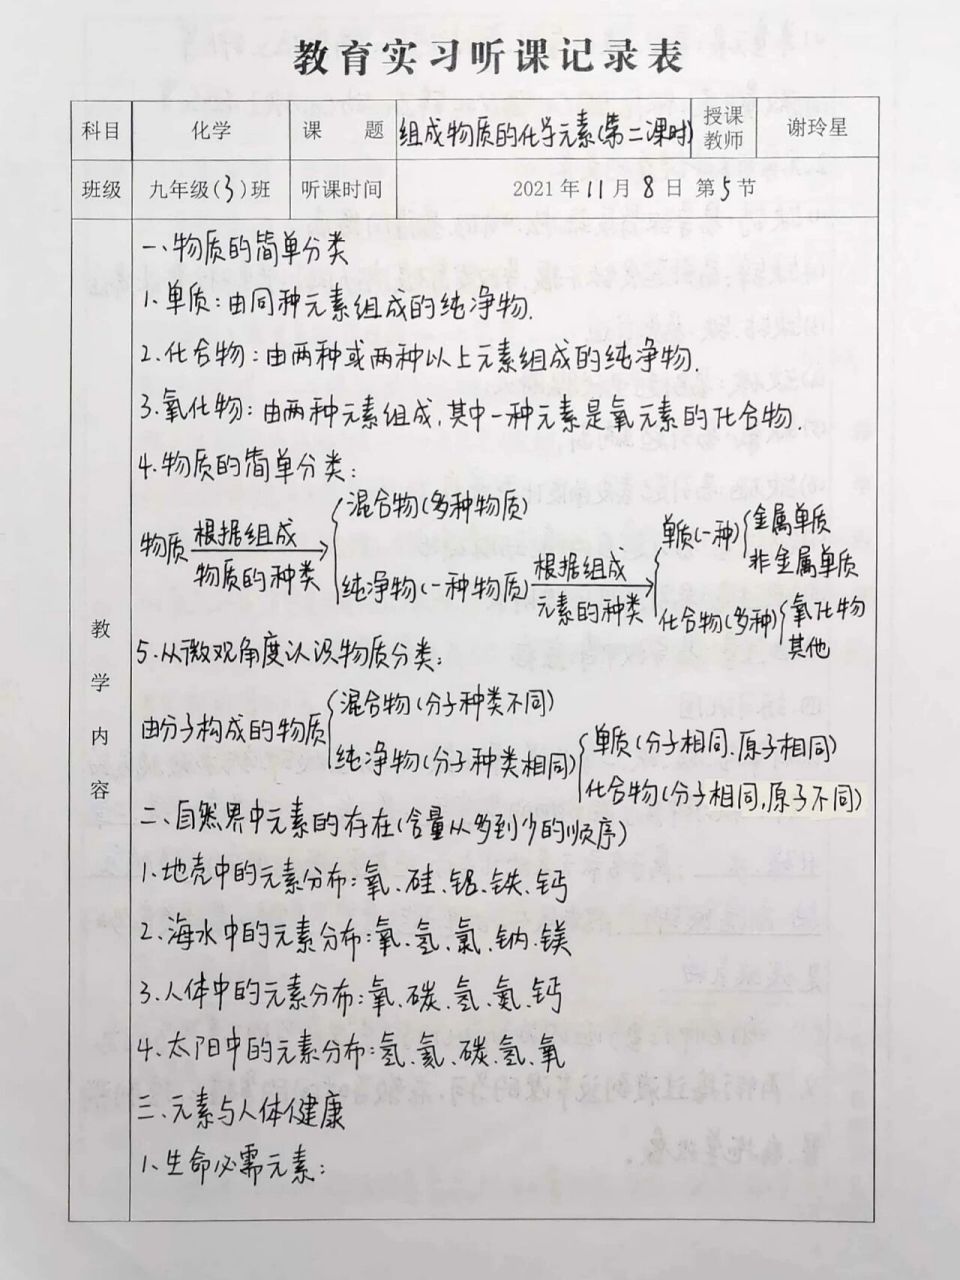 教育实习听课记录表
科目 化学 课题 组成物质的化学元素(第二课时) 授课教师 谢玲星
班级 九年级(3)班 听课时间 2021年11月8日 第5节
教学内容
一、物质的简单分类
1.单质:由同种元素组成的纯净物.
2.化合物:由两种或两种以上元素组成的纯净物.
3.氧化物:由两种元素组成,其中一种元素是氧元素的化合物.
4.物质的简单分类:
物质 根据组成 物质的种类
混合物(多种物质)
纯净物(一种物质) 根据组成 元素的种类
单质(一种) 金属单质 非金属单质
化合物(多种) 氧化物 其他
5.从微观角度认识物质分类:
由分子构成的物质
混合物(分子种类不同)
纯净物(分子种类相同)
单质(分子相同.原子相同)
化合物(分子相同,原子不同)
二、自然界中元素的存在(含量从多到少的顺序)
1.地壳中的元素分布:氧、硅、铝、铁、钙
2.海水中的元素分布:氧、氢、氯、钠、镁
3.人体中的元素分布:氧、碳、氢、氮、钙
4.太阳中的元素分布:氢、氦、碳、氮、氧
三、元素与人体健康
1、生命必需元素: